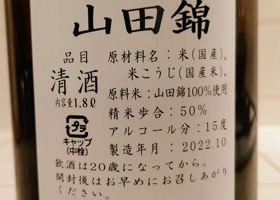 山田錦
品目
清酒
内容量1.8ℓ
原材料名：米(国産)、
米こうじ(国産米)、
原料米：山田錦100%使用
精米歩合：50%
アルコール分：15度
製造年月：2022.10
プラ
キャップ
(中栓)
飲酒は20歳になってから。
開封後はお早めにお召しあがり
ください。